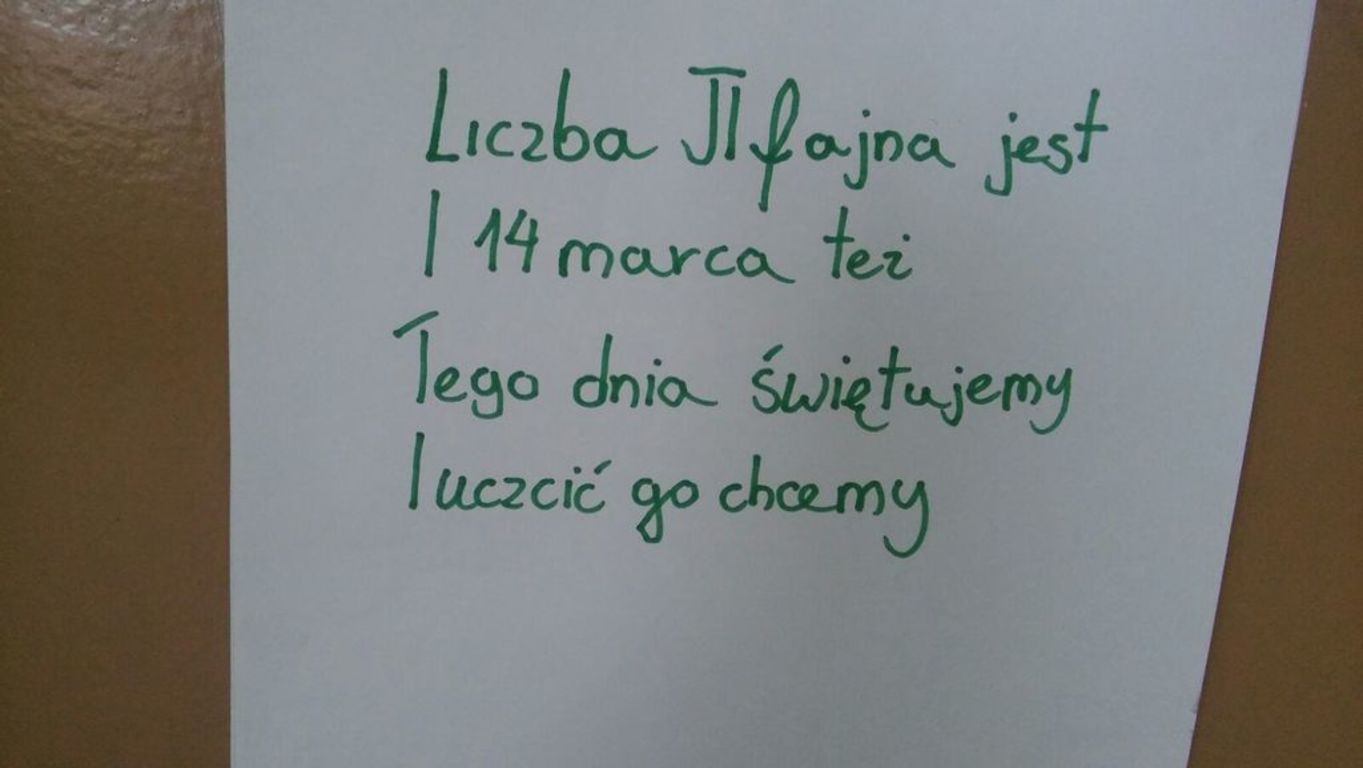 Liczba π fajna jest
I 14 marca też
Tego dnia świętujemy
I uczcić go chcemy